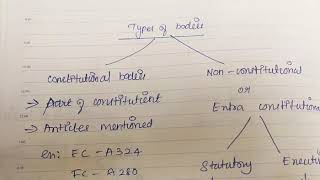 Types of bodies
Constitutional bodies
Non-constitutional
→ Part of constitutient
or
Extra constitutiona
→ Articles mentioned
ex: EC - A324
FC - A280
Statutory
Executiv